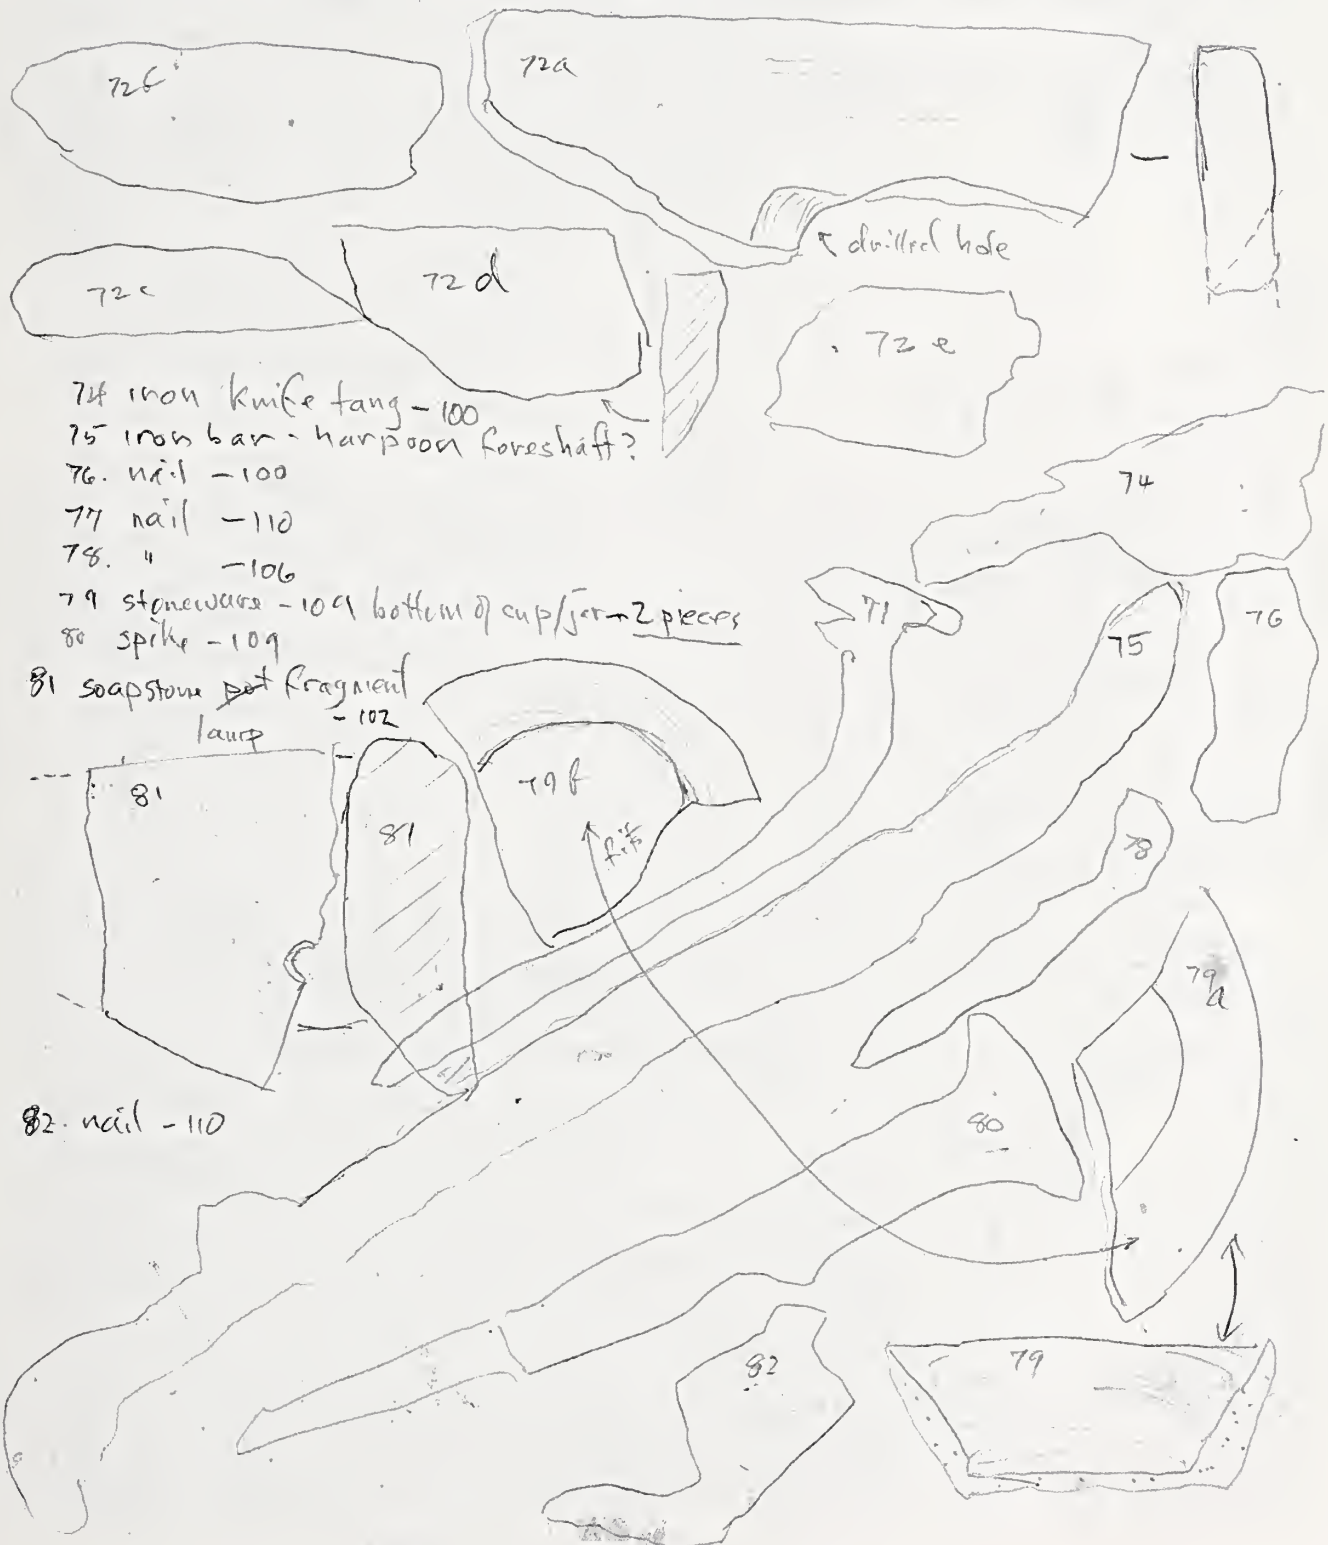 72b
72a
drilled hole
72c
72d
72e
74 iron knife tang - 100
75 iron bar - harpoon foreshaft?
76. nail - 100
77 nail - 110
78. " - 106
79 stoneware - 109 bottom of cup/jar - 2 pieces
80 spike - 109
81 soapstone pot fragment
lamp - 102
74
71
75
76
81
81
79b
fits
78
79a
80
82. nail - 110
82
79